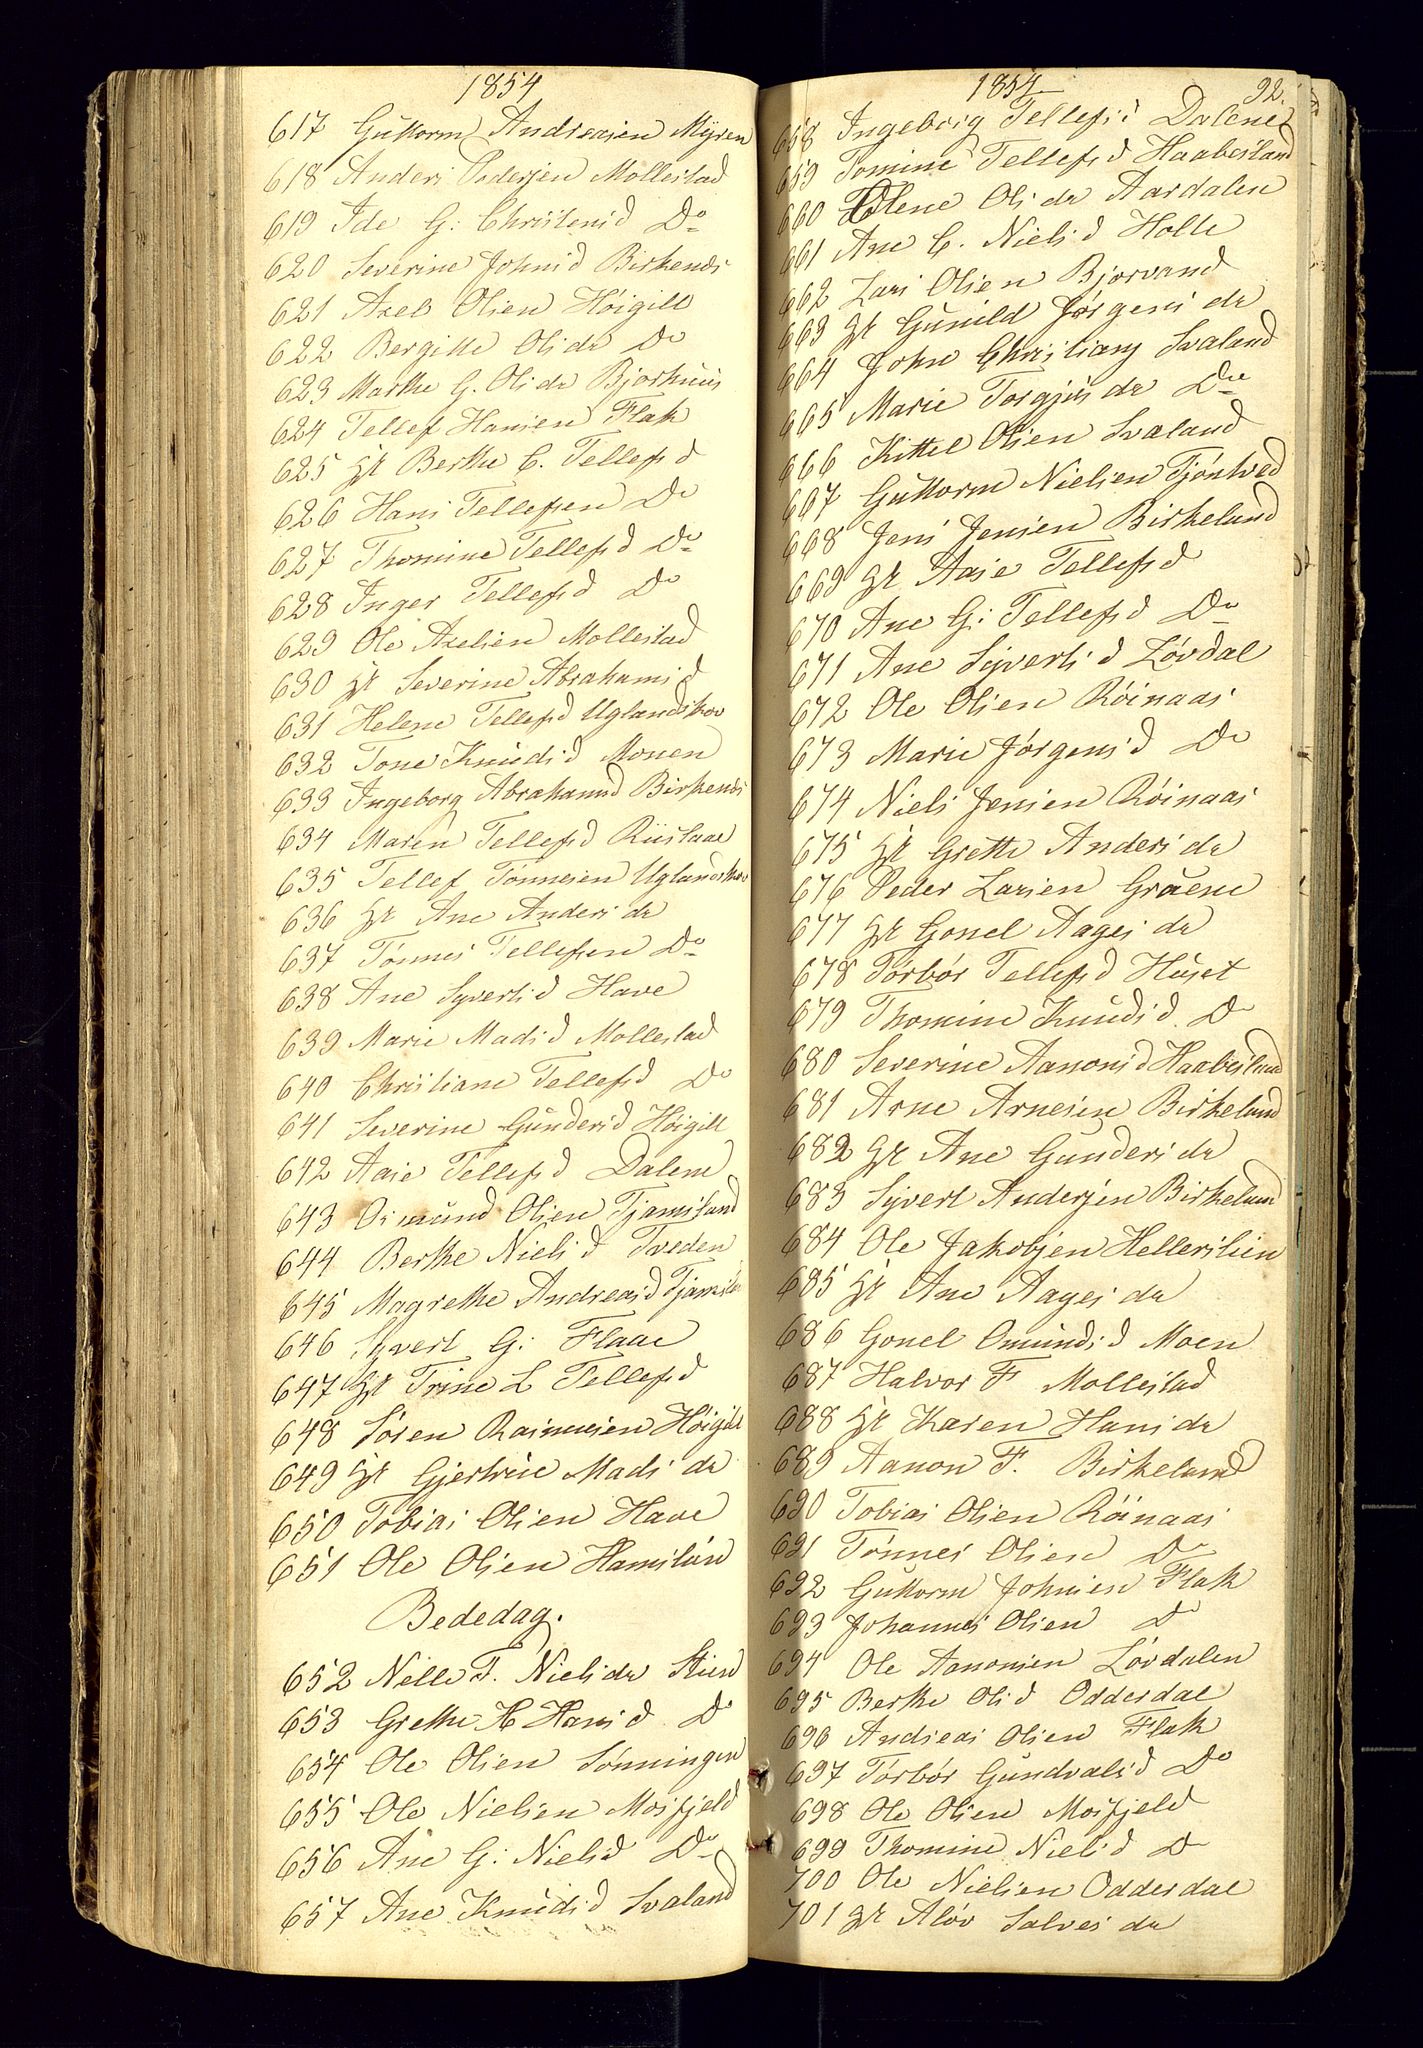 1854
617 Guttorm Andreasen Myren
618 Anders Pedersen Mollestad
619 Ide G: Christensd Do
620 Severine Johnsd Birkends
621 Axel Olsen Höigill
622 Bergitte Olsdr Do
623 Marthe G. Olsdr Bjorhuus
624 Tellef Hansen Flak
625 Hr Berthe C. Tellefsd
626 Hans Tellefsen Do
627 Thomine Tellefsd Do
628 Inger Tellefsd Do
629 Ole Axelsen Mollestad
630 Hr Severine Abrahamsd
631 Helene Tellefsd Uglandskov
632 Tone Knudsd Monen
633 Ingeborg Abrahamsd Birkends
634 Maren Tellefsd Riislaae
635 Tellef Tönnesen Uglandskov
636 Hr Ane Andersdr
637 Tönnes Tellefsen Do
638 Ane Syvertsd Have
639 Marie Madsd Mollestad
640 Christiane Tellefsd Do
641 Severine Gundersd Höigill
642 Aase Tellefsd Dalene
643 Osmund Olsen Tjamsland
644 Berthe Nielsd Tveden
645 Magrethe Andreasd
646 Syvert G: Flaae
647 Hr Trine L Tellefsd
648 Sören Rasmusen Höigill
649 Hr Gjertrue Madsdr
650 Tobias Olsen Have
651 Ole Olsen
Bededag.
652 Nelle T. Nielsdr Stien
653 Grethe H Hansd Do
654 Ole Olsen Lönningen
655 Ole Nielsen Mosfjeld
656 Ane G: Nielsd Do
657 Ane Knudsd Svaland
1854 92.
658 Ingeborg Tellefsd Dalene
659 Tomine Tellefsd Haabesland
660 Olene Olsdr Aardalen
661 Ane C. Nielsd Holte
662 Lars Olsen Bjorvand
663 Hr Gunild Jörgensdr
664 John Christians Svaland
665 Marie Torgjusdr Do
666 Kittel Olsen Svaland
667 Guttorm Nielsen Tjöntved
668 Jens Jensen Birkeland
669 Hr Aase Tellefsd
670 Ane G: Tellefsd Do
671 Ane Syvertsd Lövdal
672 Ole Olsen Röinaas
673 Marie Jörgensd Do
674 Niels Jensen Röinaas
675 Hr Grethe Andersdr
676 Peder Larsen Gruene
677 Hr Gonel Aagesdr
678 Torbor Tellefsd Huset
679 Thomine Knudsd Do
680 Severine Aanonsd Haabesland
681 Arne Arnesen Birkeland
682 Hr Ane Gundersdr
683 Syvert Andersen Birkeland
684 Ole Jakobsen Hellerslien
685 Hr Ane Aagesdr
686 Gonel Omundsd Moen
687 Halvor F Mollestad
688 Hr Karen Hansdr
689 Aanon F. Birkeland
690 Tobias Olsen Röinaas
691 Tönnes Olsen Do
692 Guttorm Johnsen Flak
693 Johannes Olsen Do
694 Ole Aanonsen Lövdalen
695 Berthe Olsd Odderdal
696 Andreas Olsen Flak
697 Torbor Gundvalsd Do
698 Ole Olsen Mosfjeld
699 Thomine Nielsd Do
700 Ole Nielsen Odderdal
701 Hr Alöv Salvesdr